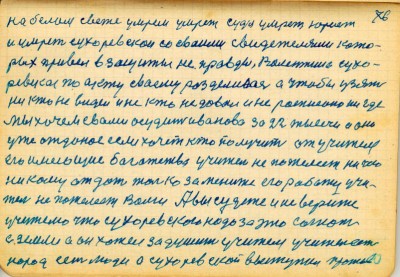 76
на белом свете умрем умрет судя умрет юрист
и умрет сухоревской со своими свидетелями кото-
рых привел в защиты не правды. Валентина сухо-
ревская по акту свaему разделивая а чтобы взяти
ни кто не видел и не кто не довал и не росписано ни где
Мы хочем свами осудит иванова за 22 тысечи а они
уже отданое если хочет кто получит от учителя
его имеющие багатства учител не пожелеет на чо
никому отдат толко замените его работу учи-
тел не пожелеет Волги А вы судете и не верите
учителю что сухоревского надо за это
с земли а он хочет задушит учителя учител ест
народ сет люди а сухоревской выступил против